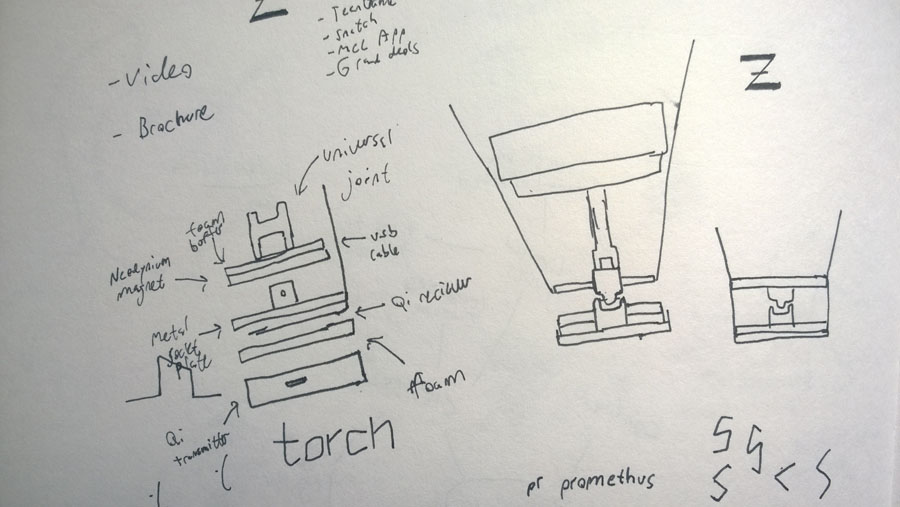 Z
- Snatch
- MCL App
- Grand deals
- Video
- Brochure
Z
universal
joint
foam
border
usb
cable
Neodynium
magnet
Qi reciever
Metal
plate
ffoam
Qi
transmitter
torch
pr promethus
S S
S < S